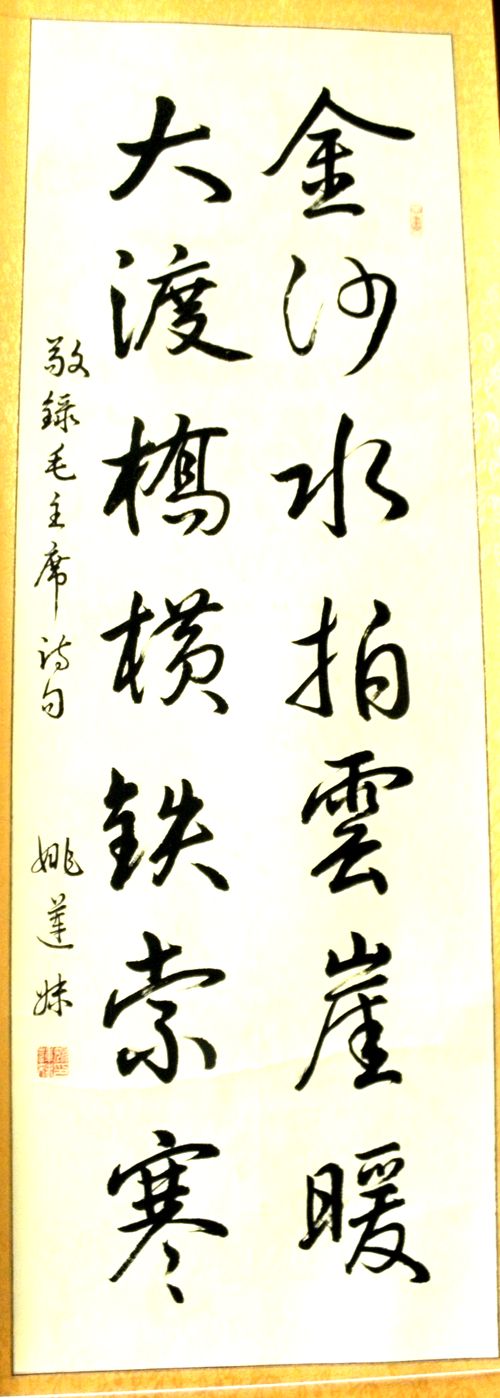 金沙水拍雲崖暖
大渡橋横鉄索寒
敬録毛主席诗句
姚蓮妹